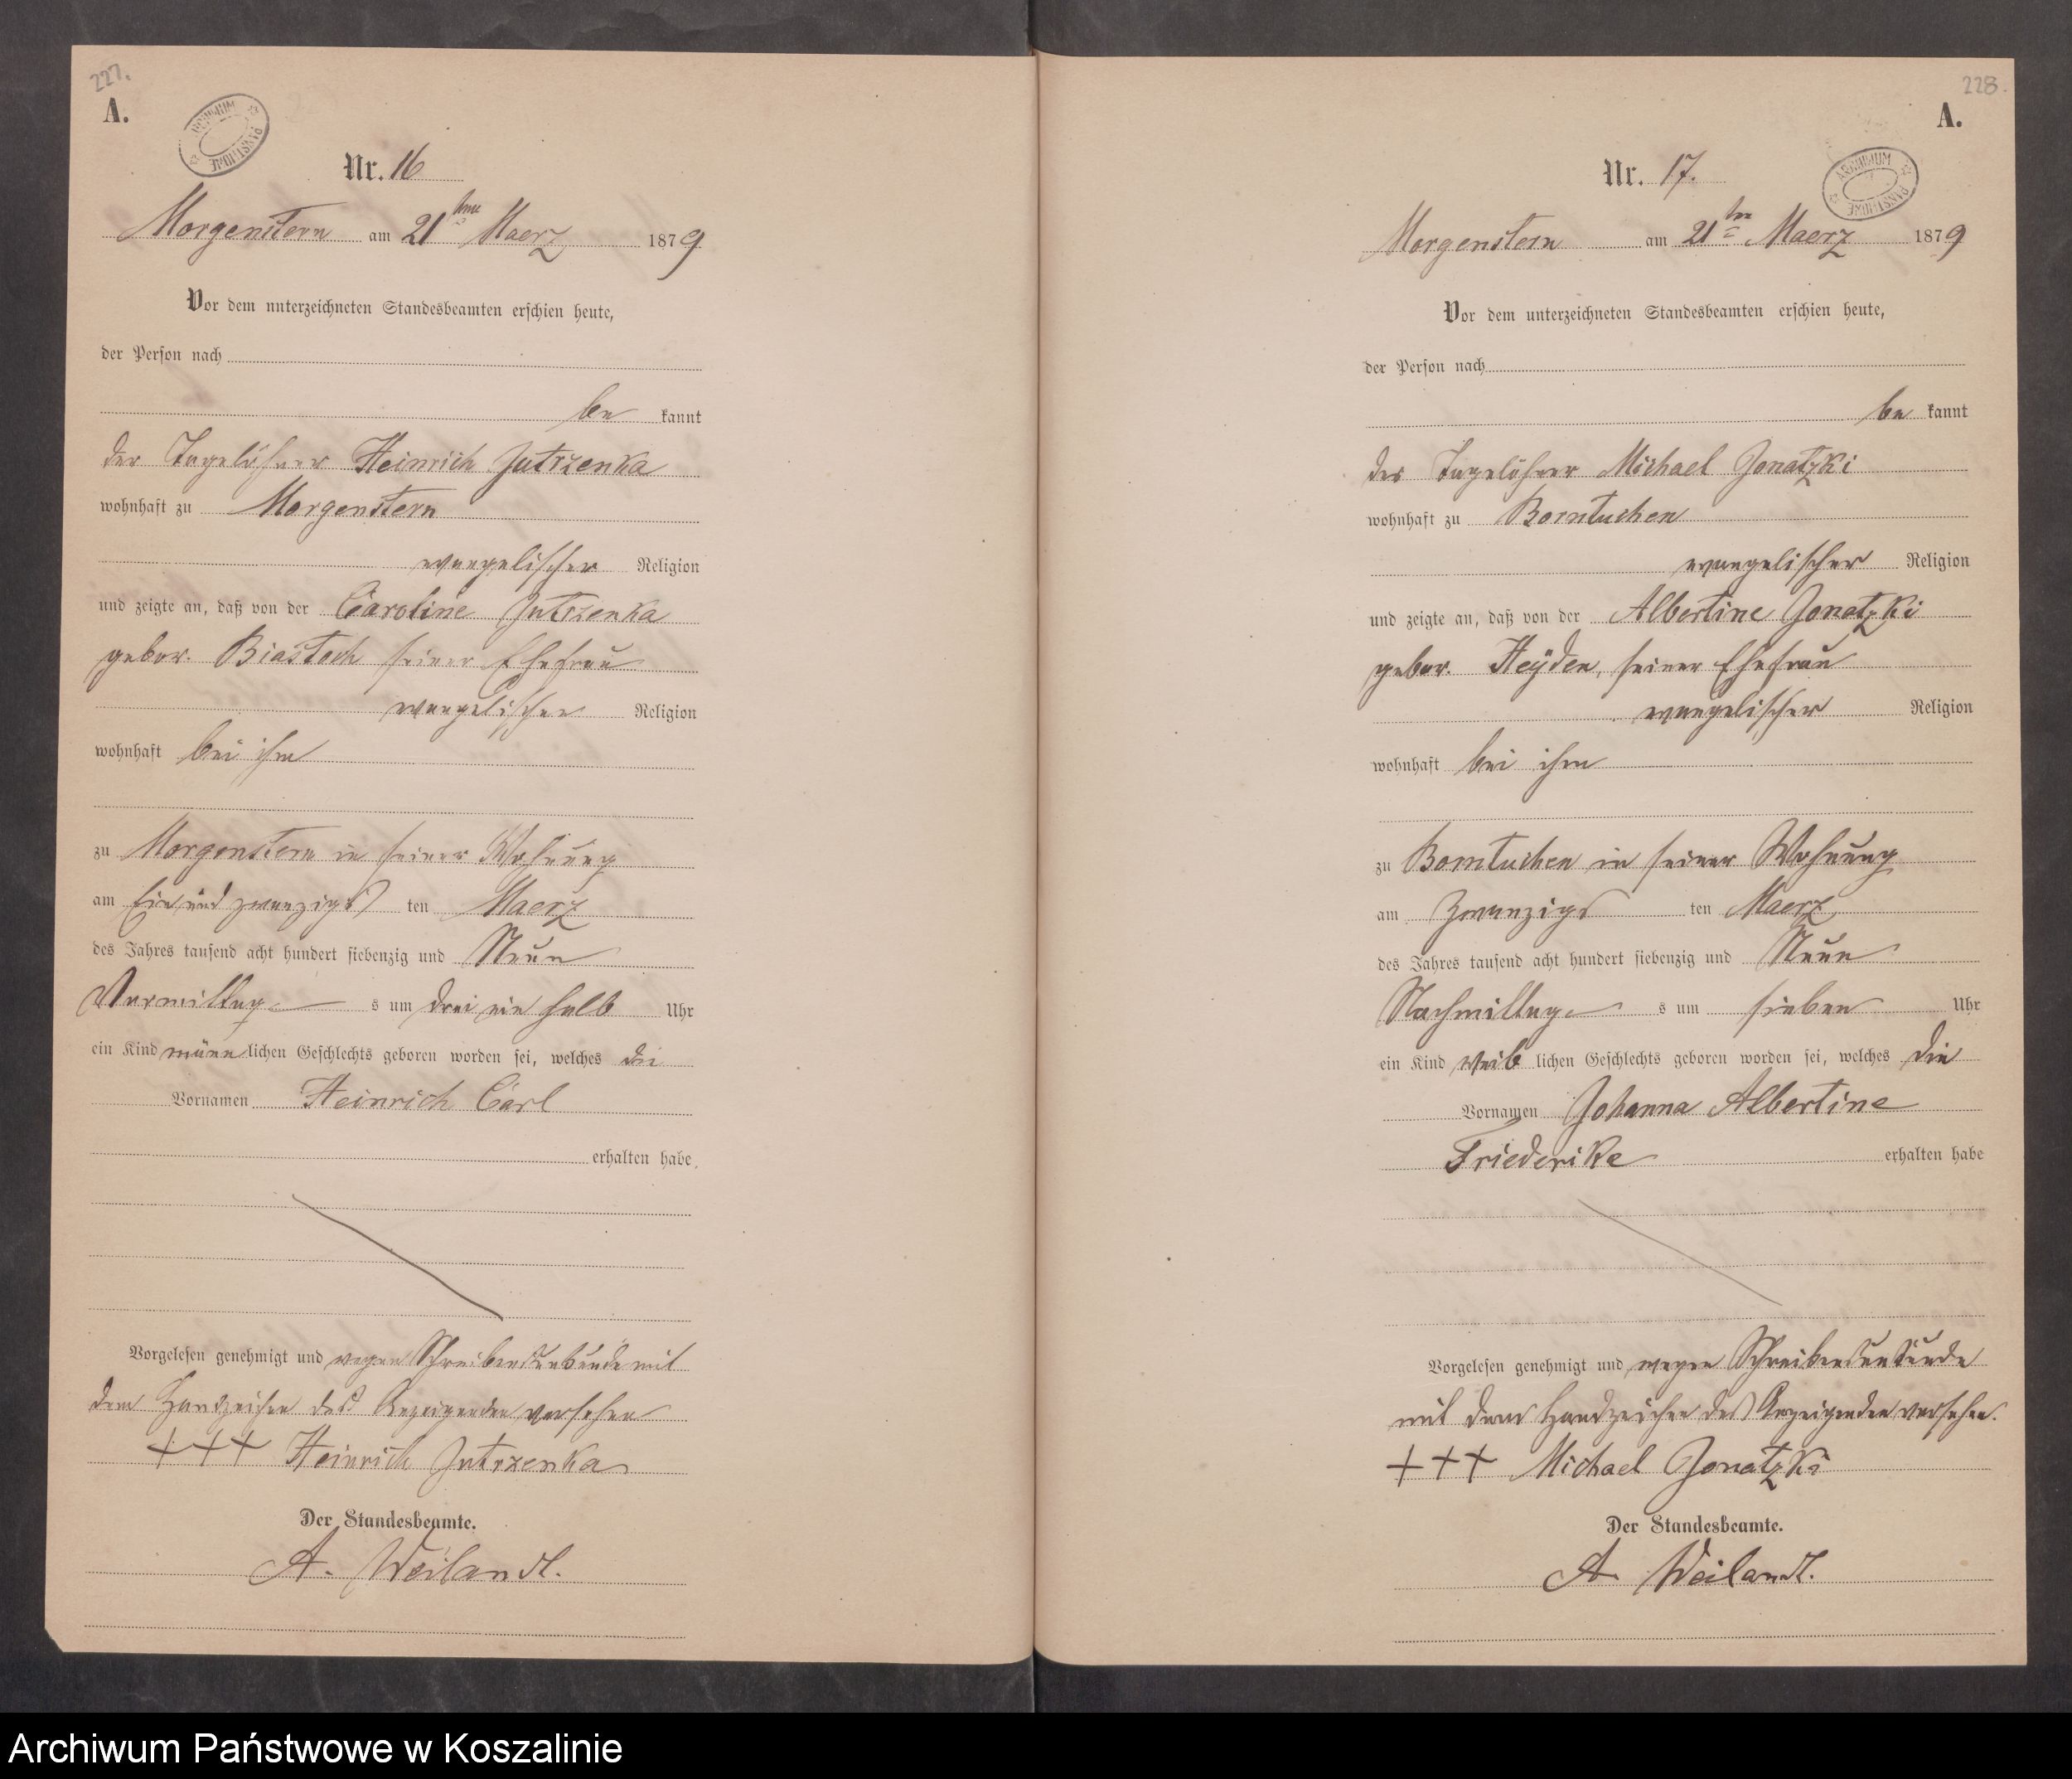 227.
A.
ARCHIWUM PAŃSTWOWE
Nr. 16
Morgenstern am 21ten Maerz 1879
Vor dem unterzeichneten Standesbeamten erschien heute,
der Person nach
be kannt
der Tagelöhner Heinrich Jutrzenka
wohnhaft zu Morgenstern
evangelischer Religion
und zeigte an, daß von der Caroline Jutrzenka
gebor. Biastoch seiner Ehefrau
evangelischer Religion
wohnhaft bei ihm
zu Morgenstern in seiner Wohnung
am Ein und zwanzigs ten Maerz
des Jahres tausend acht hundert siebenzig und Neun
Vormittag s um drei ein halb Uhr
ein Kind männlichen Geschlechts geboren worden sei, welches die
Vornamen Heinrich Carl
erhalten habe.
Vorgelesen genehmigt und wegen Schreibensunkunde mit
dem Handzeichen des Anzeigenden versehen
+++ Heinrich Jutrzenka
Der Standesbeamte.
A. Weilandt.
228.
A.
ARCHIWUM PAŃSTWOWE
Nr. 17.
Morgenstern am 21ten Maerz 1879
Vor dem unterzeichneten Standesbeamten erschien heute,
der Person nach
be kannt
der Tagelöhner Michael Jonatzki
wohnhaft zu Borntuchen
evangelischer Religion
und zeigte an, daß von der Albertine Jonatzki
gebor. Heÿden, seiner Ehefrau
evangelischer Religion
wohnhaft bei ihm
zu Borntuchen in seiner Wohnung
am Zwanzigs ten Maerz
des Jahres tausend acht hundert siebenzig und Neun
Nachmittag s um sieben Uhr
ein Kind weib lichen Geschlechts geboren worden sei, welches die
Vornamen Johanna Albertine
Friederike erhalten habe
Vorgelesen genehmigt und wegen Schreibensunkunde
mit dem Handzeichen des Anzeigenden versehen.
+++ Michael Jonatzki
Der Standesbeamte.
A. Weilandt.
Archiwum Państwowe w Koszalinie